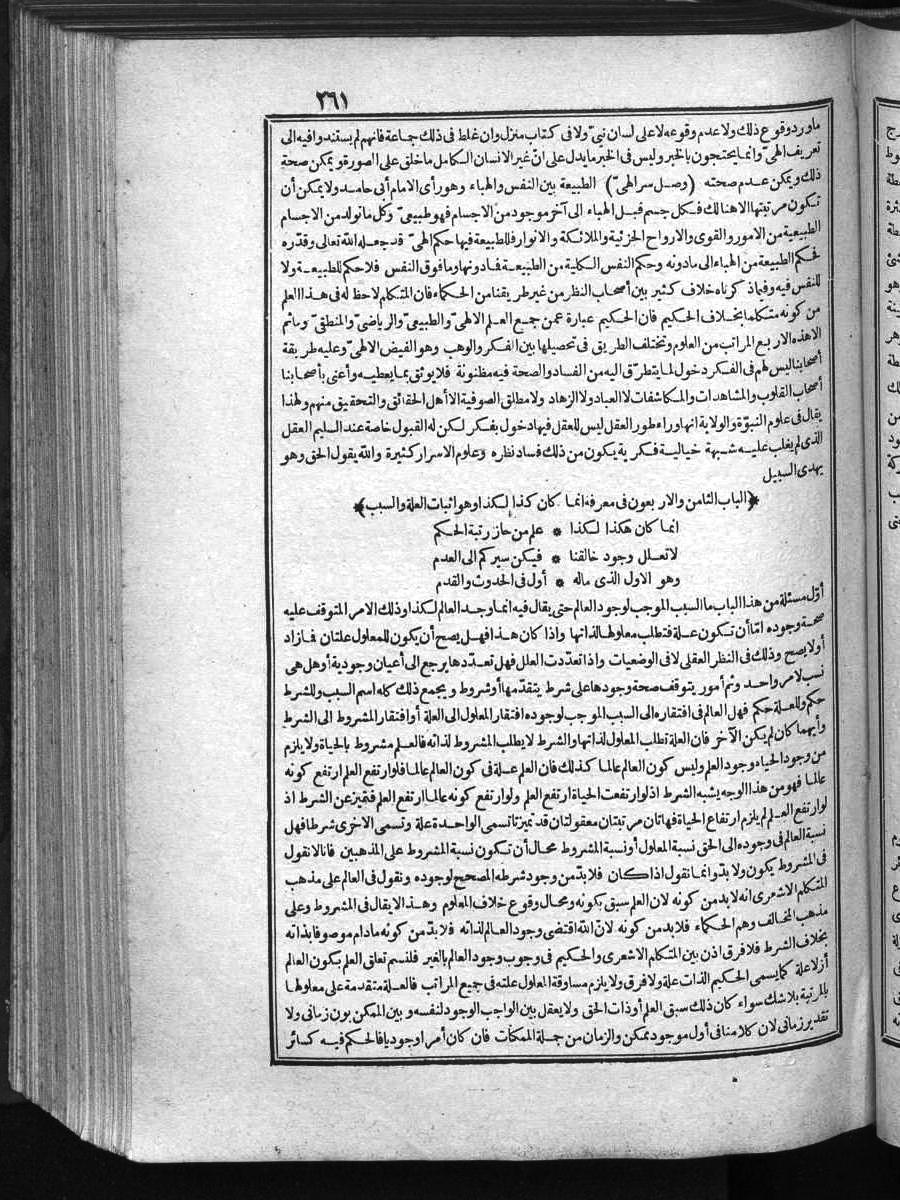 ٢٦١
ماورد وقوع ذلك ولا عدم وقوعه لا على لسان نبىّ ولا فى كتاب منزل وان غلط فى ذلك جماعة فانهم لم يستندوا فيه الى
تعريف الهىّ وانما يحتجون بالخبر وليس فى الخبر ما يدل على انّ غير الانسان الكامل ما خلق على الصورة ويمكن صحة
ذلك ويمكن عدم صحته (وصل سر الهىّ) الطبيعة بين النفس والهباء وهو رأى الامام أبى حامد ولا يمكن أن
تكون مرتبتها الا هنالك فكل جسم قبل الهباء الى آخر موجود من الاجسام فهو طبيعىّ وكل ما تولد من الاجسام
الطبيعية من الامور والقوى والارواح الجزئية والملائكة والانوار فللطبيعة فيها حكم الهىّ قد جعله الله تعالى وقدّره
فحكم الطبيعة من الهباء الى مادونه وحكم النفس الكلية من الطبيعة فادونها وما فوق النفس فلا حكم للطبيعة ولا
للنفس فيه وفيما ذكرناه خلاف كثير بين أصحاب النظر من غير طريقنا من الحكماء فان المتكلم لاحظ له فى هذا العلم
من كونه متكلما بخلاف الحكيم فان الحكيم عبارة عمن جمع العلم الالهىّ والطبيعىّ والرياضىّ والمنطقىّ وماثم
الا هذه الاربع المراتب من العلوم وتختلف الطريق فى تحصيلها بين الفكر والوهب وهو الفيض الالهىّ وعليه طريقة
أصحابنا ليس لهم فى الفكر دخول لما يتطرّق اليه من الفساد والصحة فيه مظنونة فلا يوثق بما يعطيه وأعنى بأصحابنا
أصحاب القلوب والمشاهدات والمكاشفات لا العباد ولا الزهاد ولا مطلق الصوفية الا أهل الحقائق والتحقيق منهم ولهذا
يقال فى علوم النبوّة والولاية انها وراء طور العقل ليس للعقل فيها دخول بفكر لكن له القبول خاصة عند السليم العقل
الذى لم يغلب عليه شبهة خيالية فكرية يكون من ذلك فساد نظره وعلوم الاسرار كثيرة والله يقول الحق وهو
يهدى السبيل
﴿الباب الثامن والاربعون فى معرفة انما كان كذا لكذا وهو اثبات العلة والسبب﴾
انما كان هكذا لكذا * علم من حاز رتبة الحكم
لا تعلل وجود خالقنا * فيكن سيركم الى العدم
وهو الاول الذى ماله * أول فى الحدوث والقدم
أوّل مسئلة من هذا الباب ما السبب الموجب لوجود العالم حتى يقال فيه انما وجد العالم لكذا وذلك الامر المتوقف عليه
صحة وجوده امّا أن تكون علة فتطلب معلولها لذاتها واذا كان هذا فهل يصح أن يكون للمعلول علتان فازاد
أولا يصح وذلك فى النظر العقلى لا فى الوضعيات واذا تعدّدت العلل فهل تعدّدها يرجع الى أعيان وجودية أو هل هى
نسب لامر واحد وثم أمور يتوقف صحة وجودها على شرط يتقدّمها أو شروط ويجمع ذلك كله اسم السبب وللشرط
حكم وللعلة حكم فهل العالم فى افتقاره الى السبب الموجب لوجوده افتقار المعلول الى العلة أو افتقار المشروط الى الشرط
وأيهما كان لم يكن الآخر فان العلة تطلب المعلول لذاتها والشرط لا يطلب المشروط لذاته فالعلم مشروط بالحياة ولا يلزم
من وجود الحياه وجود العلم وليس كون العالم عالما كذلك فان العلم علة فى كون العالم عالما فلو ارتفع العلم ارتفع كونه
عالما فهو من هذا الوجه يشبه الشرط اذ لو ارتفعت الحياة ارتفع العلم ولو ارتفع كونه عالما ارتفع العلم فتميز عن الشرط اذ
لو ارتفع العلم لم يلزم ارتفاع الحياة فهاتان مرتبتان معقولتان قد تميزتا تسمى الواحدة علة وتسمى الاخرى شرطا فهل
نسبة العالم فى وجوده الى الحق نسبة المعلول أو نسبة المشروط محال أن تكون نسبة المشروط على المذهبين فانا لا نقول
فى المشروط يكون ولا بدّ وانما نقول اذا كان فلا بدّ من وجود شرطه المصحح لوجوده ونقول فى العالم على مذهب
المتكلم الاشعرى انه لا بد من كونه لان العلم سبق بكونه ومحال وقوع خلاف المعلوم وهذا لا يقال فى المشروط وعلى
مذهب المخالف وهم الحكماء فلا بد من كونه لانّ الله اقتضى وجود العالم لذاته فلا بدّ من كونه مادام موصوفا بذاته
بخلاف الشرط فلا فرق اذن بين المتكلم الاشعرى والحكيم فى وجوب وجود العالم بالغير فلنسم تعلق العلم بكون العالم
أزلا علة كما يسمى الحكيم الذات علة ولا فرق ولا يلزم مساوقة المعلول علته فى جميع المراتب فالعلة متقدمة على معلولها
بالمرتبة بلا شك سواء كان ذلك سبق العلم أو ذات الحق ولا يعقل بين الواجب الوجود لنفسه وبين الممكن بون زمانى ولا
تقدير زمانى لان كلامنا فى أول موجود ممكن والزمان من جملة الممكنات فان كان أمرا وجوديا فالحكم فيه كسائر